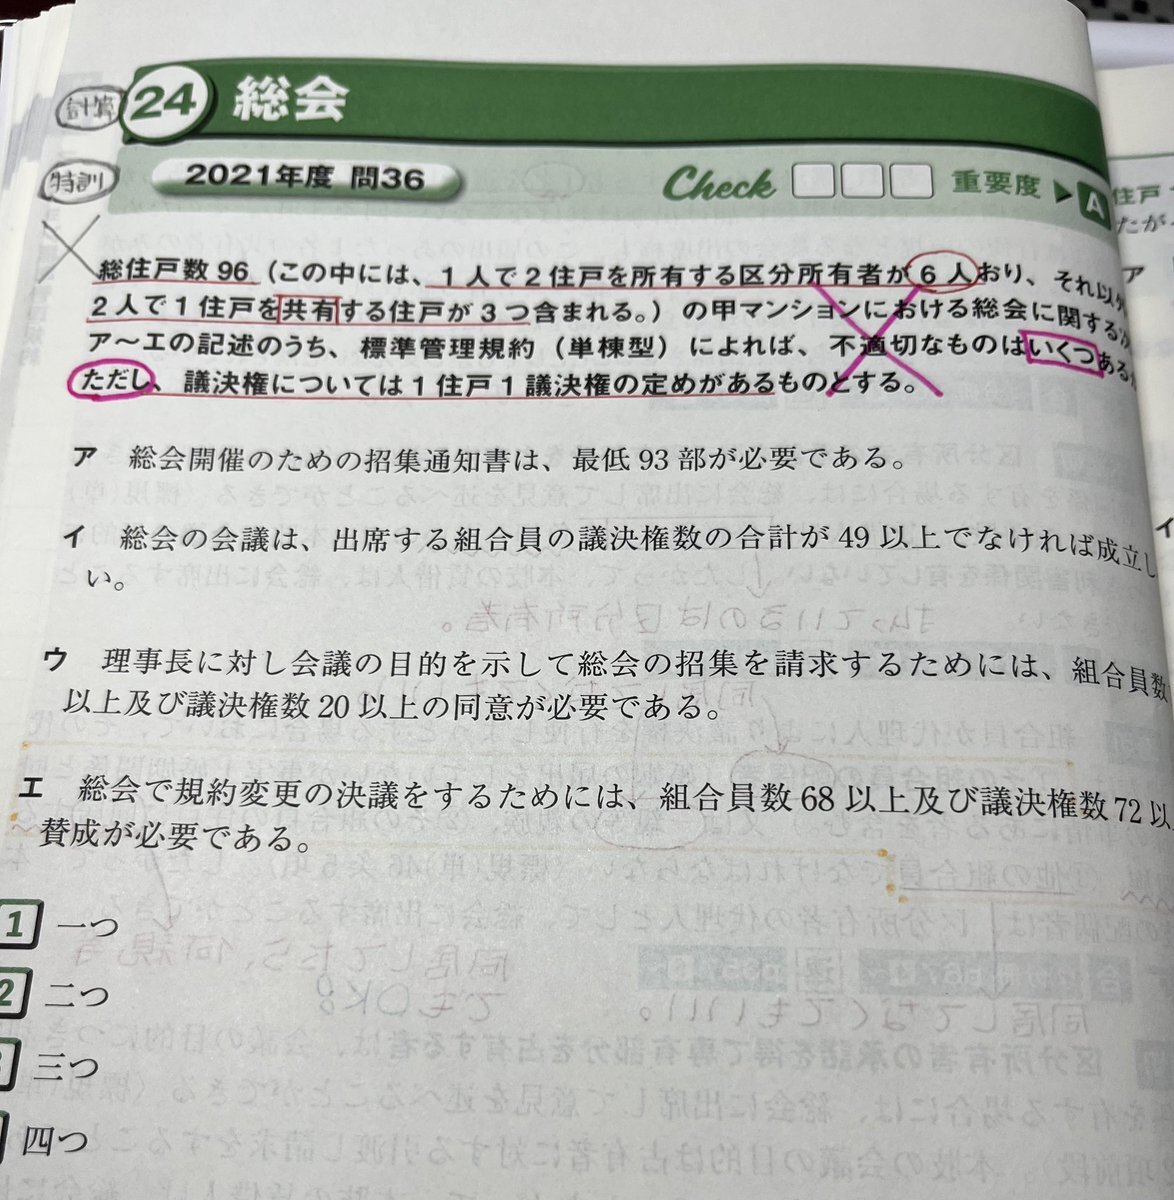 計算
24 総会
特訓
2021年度 問36 Check 重要度 A
総住戸数96（この中には、1人で2住戸を所有する区分所有者が6人おり、それ以外
2人で1住戸を共有する住戸が3つ含まれる。）の甲マンションにおける総会に関する
ア～エの記述のうち、標準管理規約（単棟型）によれば、不適切なものはいくつある
ただし、議決権については1住戸1議決権の定めがあるものとする。
ア 総会開催のための招集通知書は、最低93部が必要である。
イ 総会の会議は、出席する組合員の議決権数の合計が49以上でなければ成立し
い。
ウ 理事長に対し会議の目的を示して総会の招集を請求するためには、組合員数
以上及び議決権数20以上の同意が必要である。
エ 総会で規約変更の決議をするためには、組合員数68以上及び議決権数72以
賛成が必要である。
1 一つ
2 二つ
三つ
四つ
住戸
たが
ア
イ